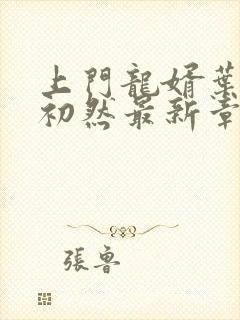 上門龍婿葉
初然最新章
張魯